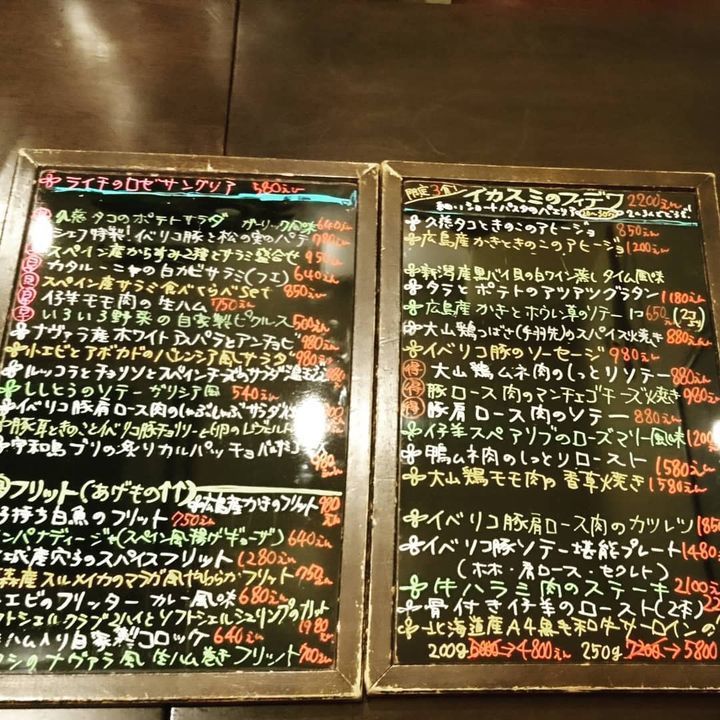 ライチのロゼサングリア 580えん
久慈タコのポテトサラダ ガーリック風味 640えん
シェフ特製!イベリコ豚と松の実のパテ 780えん
スペイン産からすみ2種とサラミ盛合せ 950えん
カタルーニャの白カビサラミ(フエ) 640えん
スペイン産サラミ食べくらべSet 850えん
仔羊モモ肉の生ハム 750えん
いろいろ野菜の自家製ピクルス 500えん
ナヴァラ産ホワイトアスパラとアンチョビ 980えん
小エビとアボカドのバレンシア風サラダ 980えん
ルッコラとチョリソとスペインチーズのサラダ
ししとうのソテー ガリシア風 540えん
イベリコ豚肩ロース肉のしゃぶしゃぶサラダ
豚耳ときのことイベリコ豚チョリソーと卵の
宇和島ブリの炙りカルパッチョ
フリット(あげもの!!)
広島産かきのフリット 980えん
子持ち白魚のフリット 750えん
ンパナディージャ(スペイン風揚げギョーザ) 640えん
産穴子のスパイスフリット 1280えん
森産スルメイカのマラガ風やわらかフリット 750えん
エビのフリッター カレー風味 680えん
フトシェルクラブ2ハイとソフトシェルシュリンプのフリット 1980えん
ハム入り自家製コロッケ 640えん
シのナヴァラ風 生ハム巻きフリット 700えん
限定3食 イカスミのフィデワ 2200えん
細いショートパスタのパエリア
久慈タコときのこのアヒージョ 850えん
広島産かきときのこのアヒージョ 1200えん
新潟産黒バイ貝の白ワイン蒸し タイム風味
タラとポテトのアツアツグラタン 1180えん
広島産かきとホウレン草のソテー 1コ 650えん(2コより)
大山鶏つばさ(手羽先)のスパイス焼き 880えん
イベリコ豚のソーセージ 980えん
得 大山鶏ムネ肉のしっとりソテー 880えん
得 豚ロース肉のマンチェゴチーズ焼き 980えん
得 豚肩ロース肉のソテー 880えん
仔羊スペアリブのローズマリー風味 1200
鴨ムネ肉のしっとりロースト 1580えん
大山鶏モモ肉の香草焼き 1580えん
イベリコ豚肩ロース肉のカツレツ 1850
イベリコ豚ソテー堪能プレート 1480
(ホホ・肩ロース・セクレト)
牛ハラミ肉のステーキ 2100えん
骨付き仔羊のロースト(2本)
北海道産A4黒毛和牛サーロインの
200g 5000→4800えん 250g 7200→5800